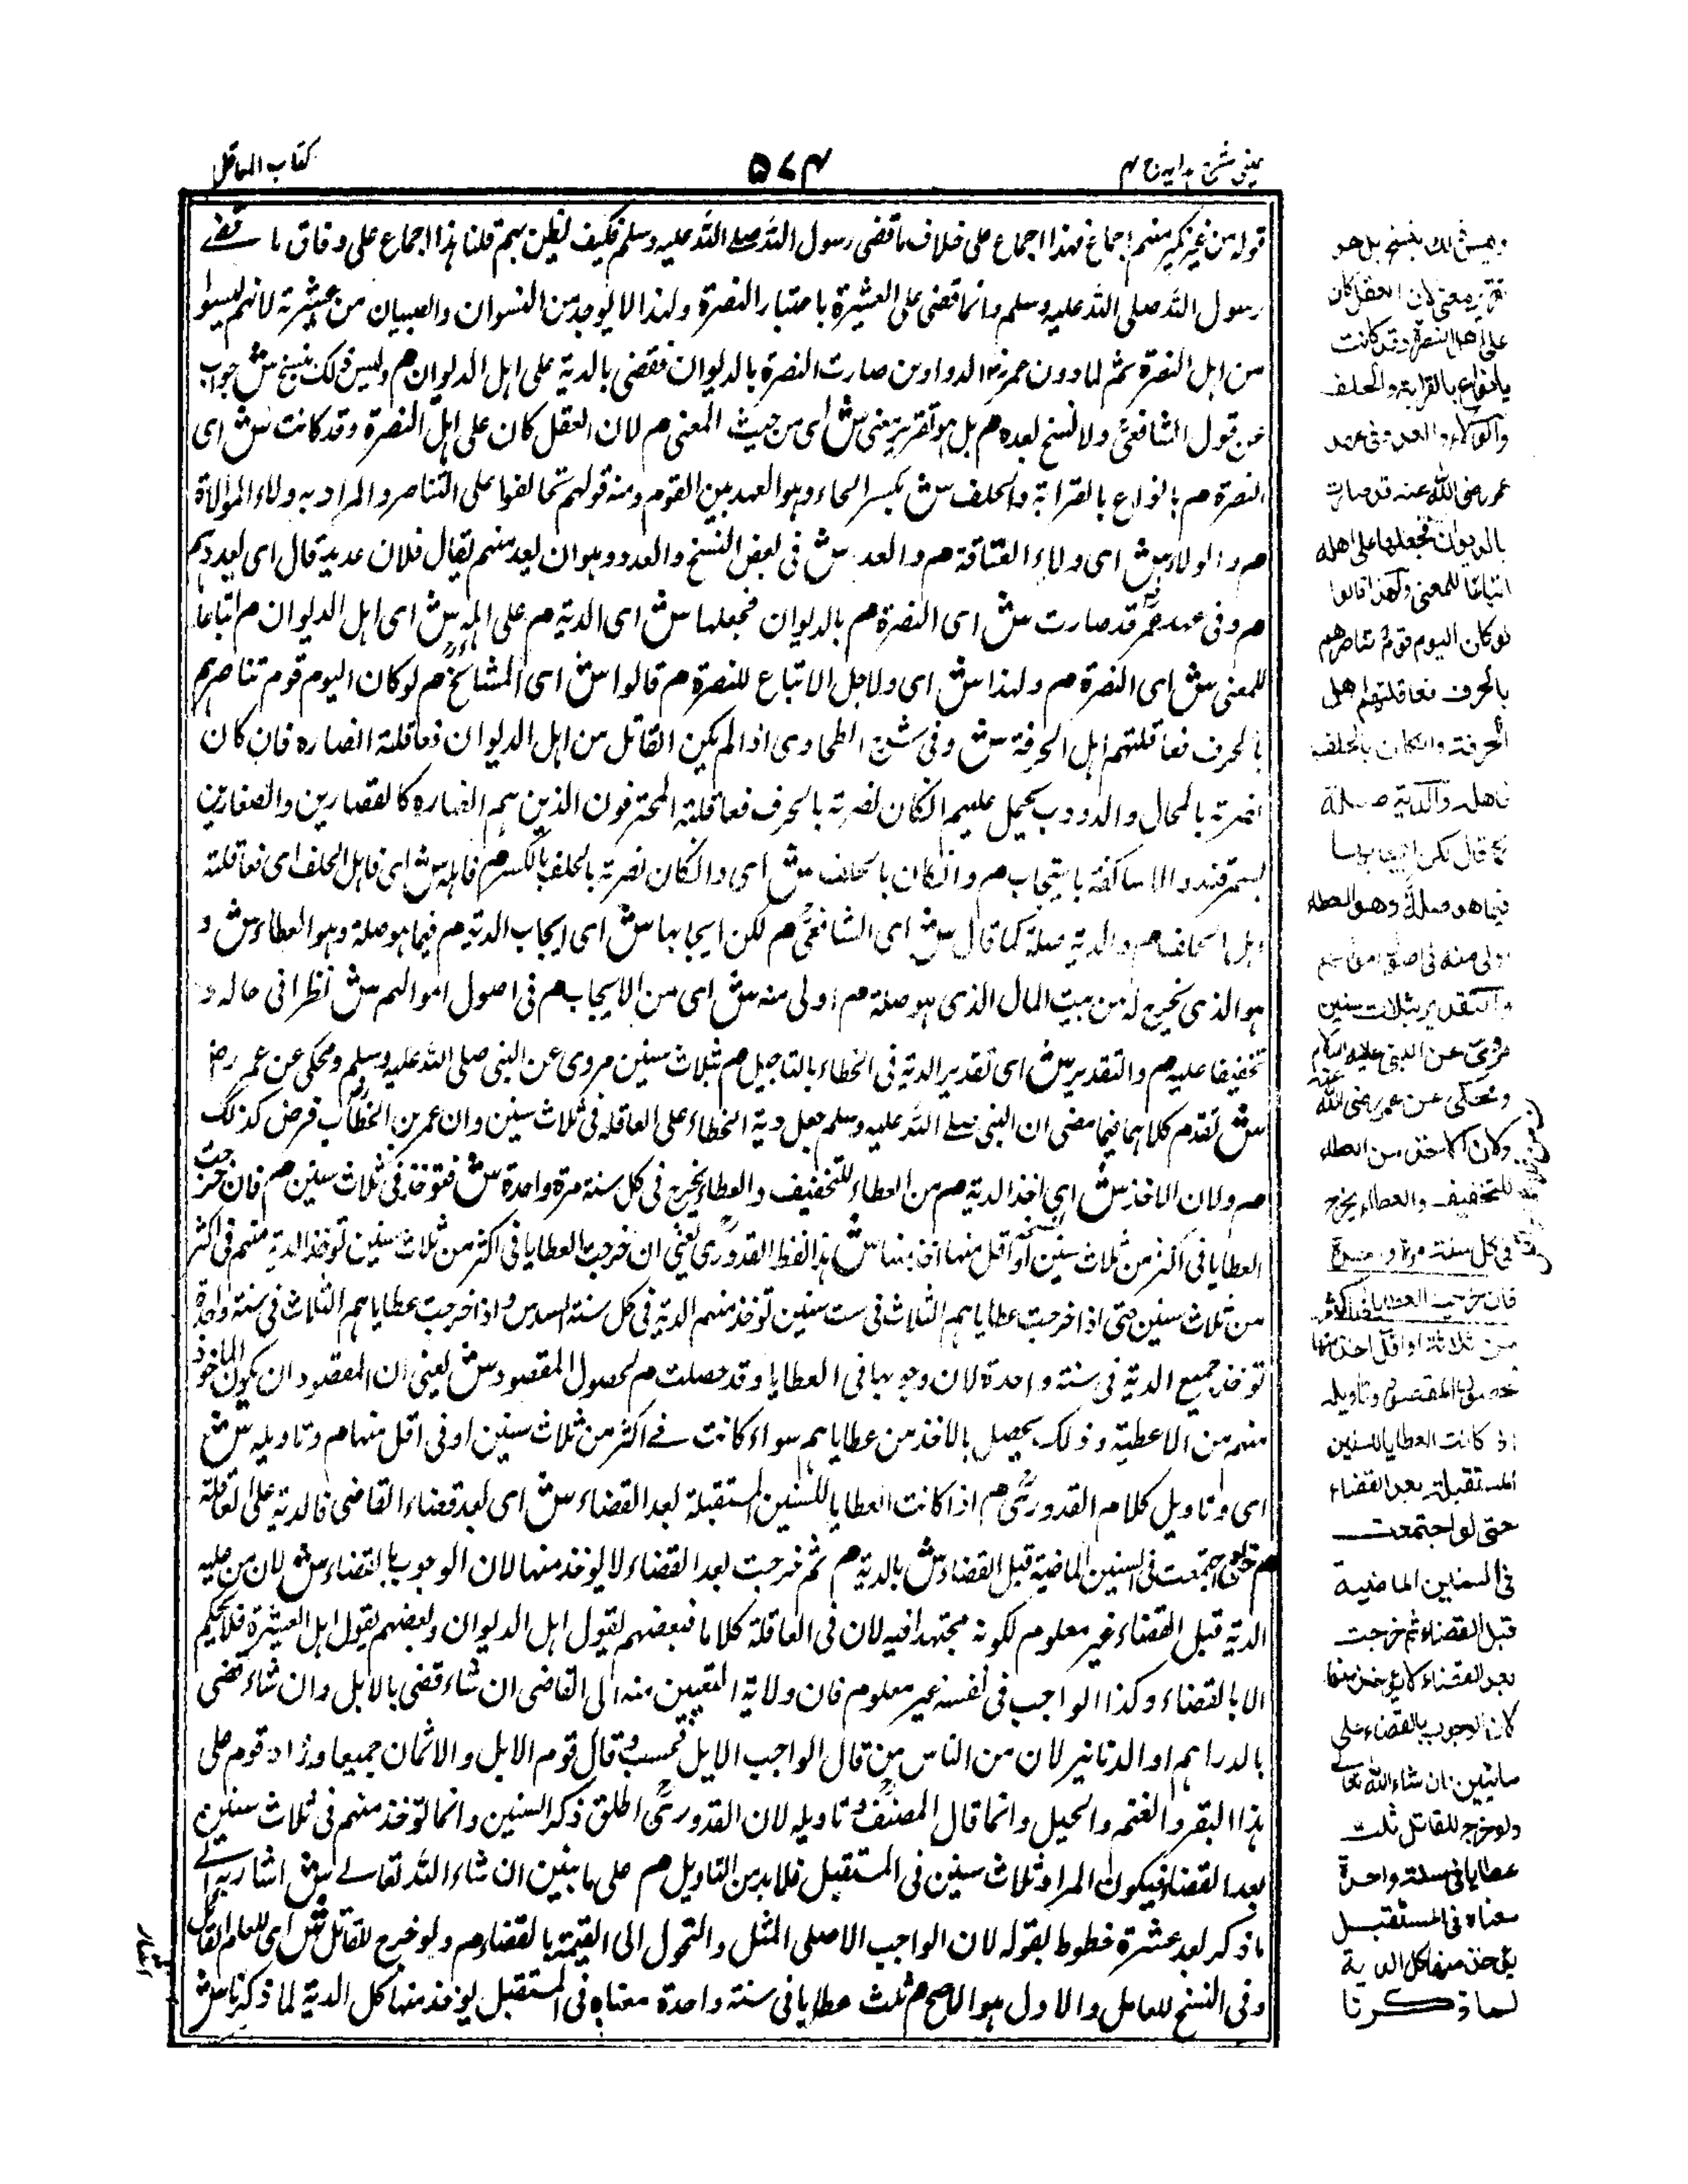 عینی شرح ہدایہ ج ۴
۵۷۴
کتاب المعاقل
قوله من غير نكير منهم اجماع فهذا اجماع على خلاف ما قضى رسول الله صلے الله عليه وسلم فكيف يظن بهم قلنا هذا اجماع على وفاق ما قضے
رسول الله صلى الله عليه وسلم وانما قضى على العشيرة باعتبار النصرة ولهذا لا يوجد من النسوان والصبيان من عشيرته لانهم ليسوا
من اهل النصرة ثم لما دون عمر الدواوين صارت النصرة بالديوان فقضى بالدية على اهل الديوان م وليس ذلك بنسخ ش جواب
عن قول الشافعى ولا نسخ بعده م بل هو تقرير معنى ش اى من حيث المعنى م لان العقل كان على اهل النصرة وقد كانت ش اى
النصرة م بانواع بالقرابة والحلف ش بكسر الحاء وهو العهد بين القوم ومنه قولهم تحالفوا على التناصر والمراد به ولاء الموالاة
م والولاء ش اى ولاء العتاقة م والعد ش فى بعض النسخ والعدد وهو ان يعد منهم يقال فلان عديد قال اى يعد فيهم
م وفى عهد عمر قد صارت ش اى النصرة م بالديوان فجعلها ش اى الدية م على اهله ش اى اهل الديوان م اتباعا
للمعنى ش اى النصرة م ولهذا ش اى ولاجل الاتباع للنصرة م قالوا ش اى المشائخ م لو كان اليوم قوم تناصرهم
بالحرف فعاقلتهم اهل الحرفة ش وفى شرح الطحاوى اذا لم يكن القاتل من اهل الديوان فعاقلته انصاره فان كان
نصرته بالمحال والدروب يحمل عليهم ان كان نصرته بالحرف فعاقلته المحترفون الذين هم انصاره كالقصارين والصفارين
بسمرقند والاساكفة باسبيجاب م وان كان بالحلف ش اى وان كان نصرته بالحلف بالكسر م فاهله ش اى فاهل الحلف اى فعاقلته
اهل الحلف م والدية صلة كما قال ش اى الشافعى م لكن ايجابها ش اى ايجاب الدية م فيما هو صلة وهو العطاء ش و
هو الذى يخرج له من بيت المال الذى هو صلة م اولى منه ش اى من الايجاب م فى اصول اموالهم ش نظرا فى حاله و
تخفيفا عليه م والتقدير ش اى تقدير الدية فى الخطاء بالتاجيل م بثلاث سنين مروى عن النبى صلى الله عليه وسلم ومحكى عن عمر رض
ش تقدم كلاهما فيما مضى ان النبى صلے الله عليه وسلم جعل دية الخطاء على العاقلة فى ثلاث سنين وان عمر بن الخطاب فرض كذلك
م ولان الاخذ ش اى اخذ الدية م من العطاء للتخفيف والعطاء يخرج فى كل سنة مرة واحدة ش فتوخذ فى ثلاث سنين م فان خرجت
العطايا فى اكثر من ثلاث سنين او اقل منها اخذ منها ش هذا لفظ القدورى يعنى ان خرجت العطايا فى اكثر من ثلاث سنين توخذ الدية منهم فى اكثر
من ثلاث سنين حتى اذا خرجت عطاياهم الثلاث فى ست سنين توخذ منهم الدية فى كل سنة السدس واذا خرجت عطاياهم الثلاث فى سنة واحدة
توخذ جميع الدية فى سنة واحدة لان وجوبها فى العطايا وقد حصلت م لحصول المقصود ش يعنى ان المقصود ان يكون الماخوذ
منهم من الاعطية وذلك يحصل بالاخذ من عطاياهم سواء كانت فے اكثر من ثلاث سنين او فى اقل منها م وتاويله ش
اى وتاويل كلام القدورى م اذا كانت العطايا للسنين المستقبلة بعد القضاء ش اى بعد قضاء القاضى فالدية على العاقلة
م حتى لو اجتمعت فى السنين الماضية قبل القضاء ش بالدية م ثم خرجت بعد القضاء لا يوخذ منها لان الوجوب بالقضاء ش لان من عليه
الدية قبل القضاء غير معلوم لكونه مجتهدا فيه لان فى العاقلة كلاما فبعضهم يقول اهل الديوان وبعضهم يقول اهل العشيرة فلا يحكم
الا بالقضاء وكذا الواجب فى نفسه غير معلوم فان ولاية التعيين منه الى القاضى ان شاء قضى بالابل وان شاء قضى
بالدراهم او الدنانير لان من الناس من قال الواجب الابل فحسب وقال قوم الابل والاثمان جميعا وزاد قوم على
هذا البقر والغنم والخيل وانما قال المصنف وتاويله لان القدورى اطلق ذكر السنين وانما توخذ منهم فى ثلاث سنين
بعد القضاء فيكون المراد ثلاث سنين فى المستقبل فلا بد من التاويل م على ما نبين ان شاء الله تعالے ش اشار به الے
ما ذكر بعد عشرة خطوط بقوله لان الواجب الاصلى المثل والتحول الى القيمة بالقضاء م ولو خرج للقاتل ش اى للعام القاتل
وفى النسخ للعامل والاول هو الاصح م ثلث عطايا فى سنة واحدة معناه فى المستقبل يوخذ منها كل الدية لما ذكرنا ش
وليس ذلك بنسخ بل هو
تقرير معنى لان العقل كان
على اهل النصرة وقد كانت
بانواع بالقرابة والحلف
والولاء والعد وفى عهد
عمر رضى الله عنه قد صارت
بالديوان فجعلها على اهله
اتباعا للمعنى ولهذا قالوا
لو كان اليوم قوم تناصرهم
بالحرف فعاقلتهم اهل
الحرفة وان كان بالحلف
فاهله والدية صلة
كما قال لكن ايجابها
فيما هو صلة وهو العطاء
اولى منه فى اصول اموالهم
والتقدير بثلاث سنين
مروى عن النبى عليه السلام
ومحكى عن عمر رضى الله عنه
ولان الاخذ من العطاء
للتخفيف والعطاء يخرج
فى كل سنة مرة واحدة
فان خرجت العطايا فى اكثر
من ثلاثة او اقل اخذ منها
لحصول المقصود وتاويله
اذا كانت العطايا للسنين
المستقبلة بعد القضاء
حتى لو اجتمعت
فى السنين الماضية
قبل القضاء ثم خرجت
بعد القضاء لا يوخذ منها
لان الوجوب بالقضاء على
ما نبين ان شاء الله تعالے
ولو خرج للقاتل ثلث
عطايا فى سنة واحدة
معناه فى المستقبل
يوخذ منها كل الدية
لما ذكرنا